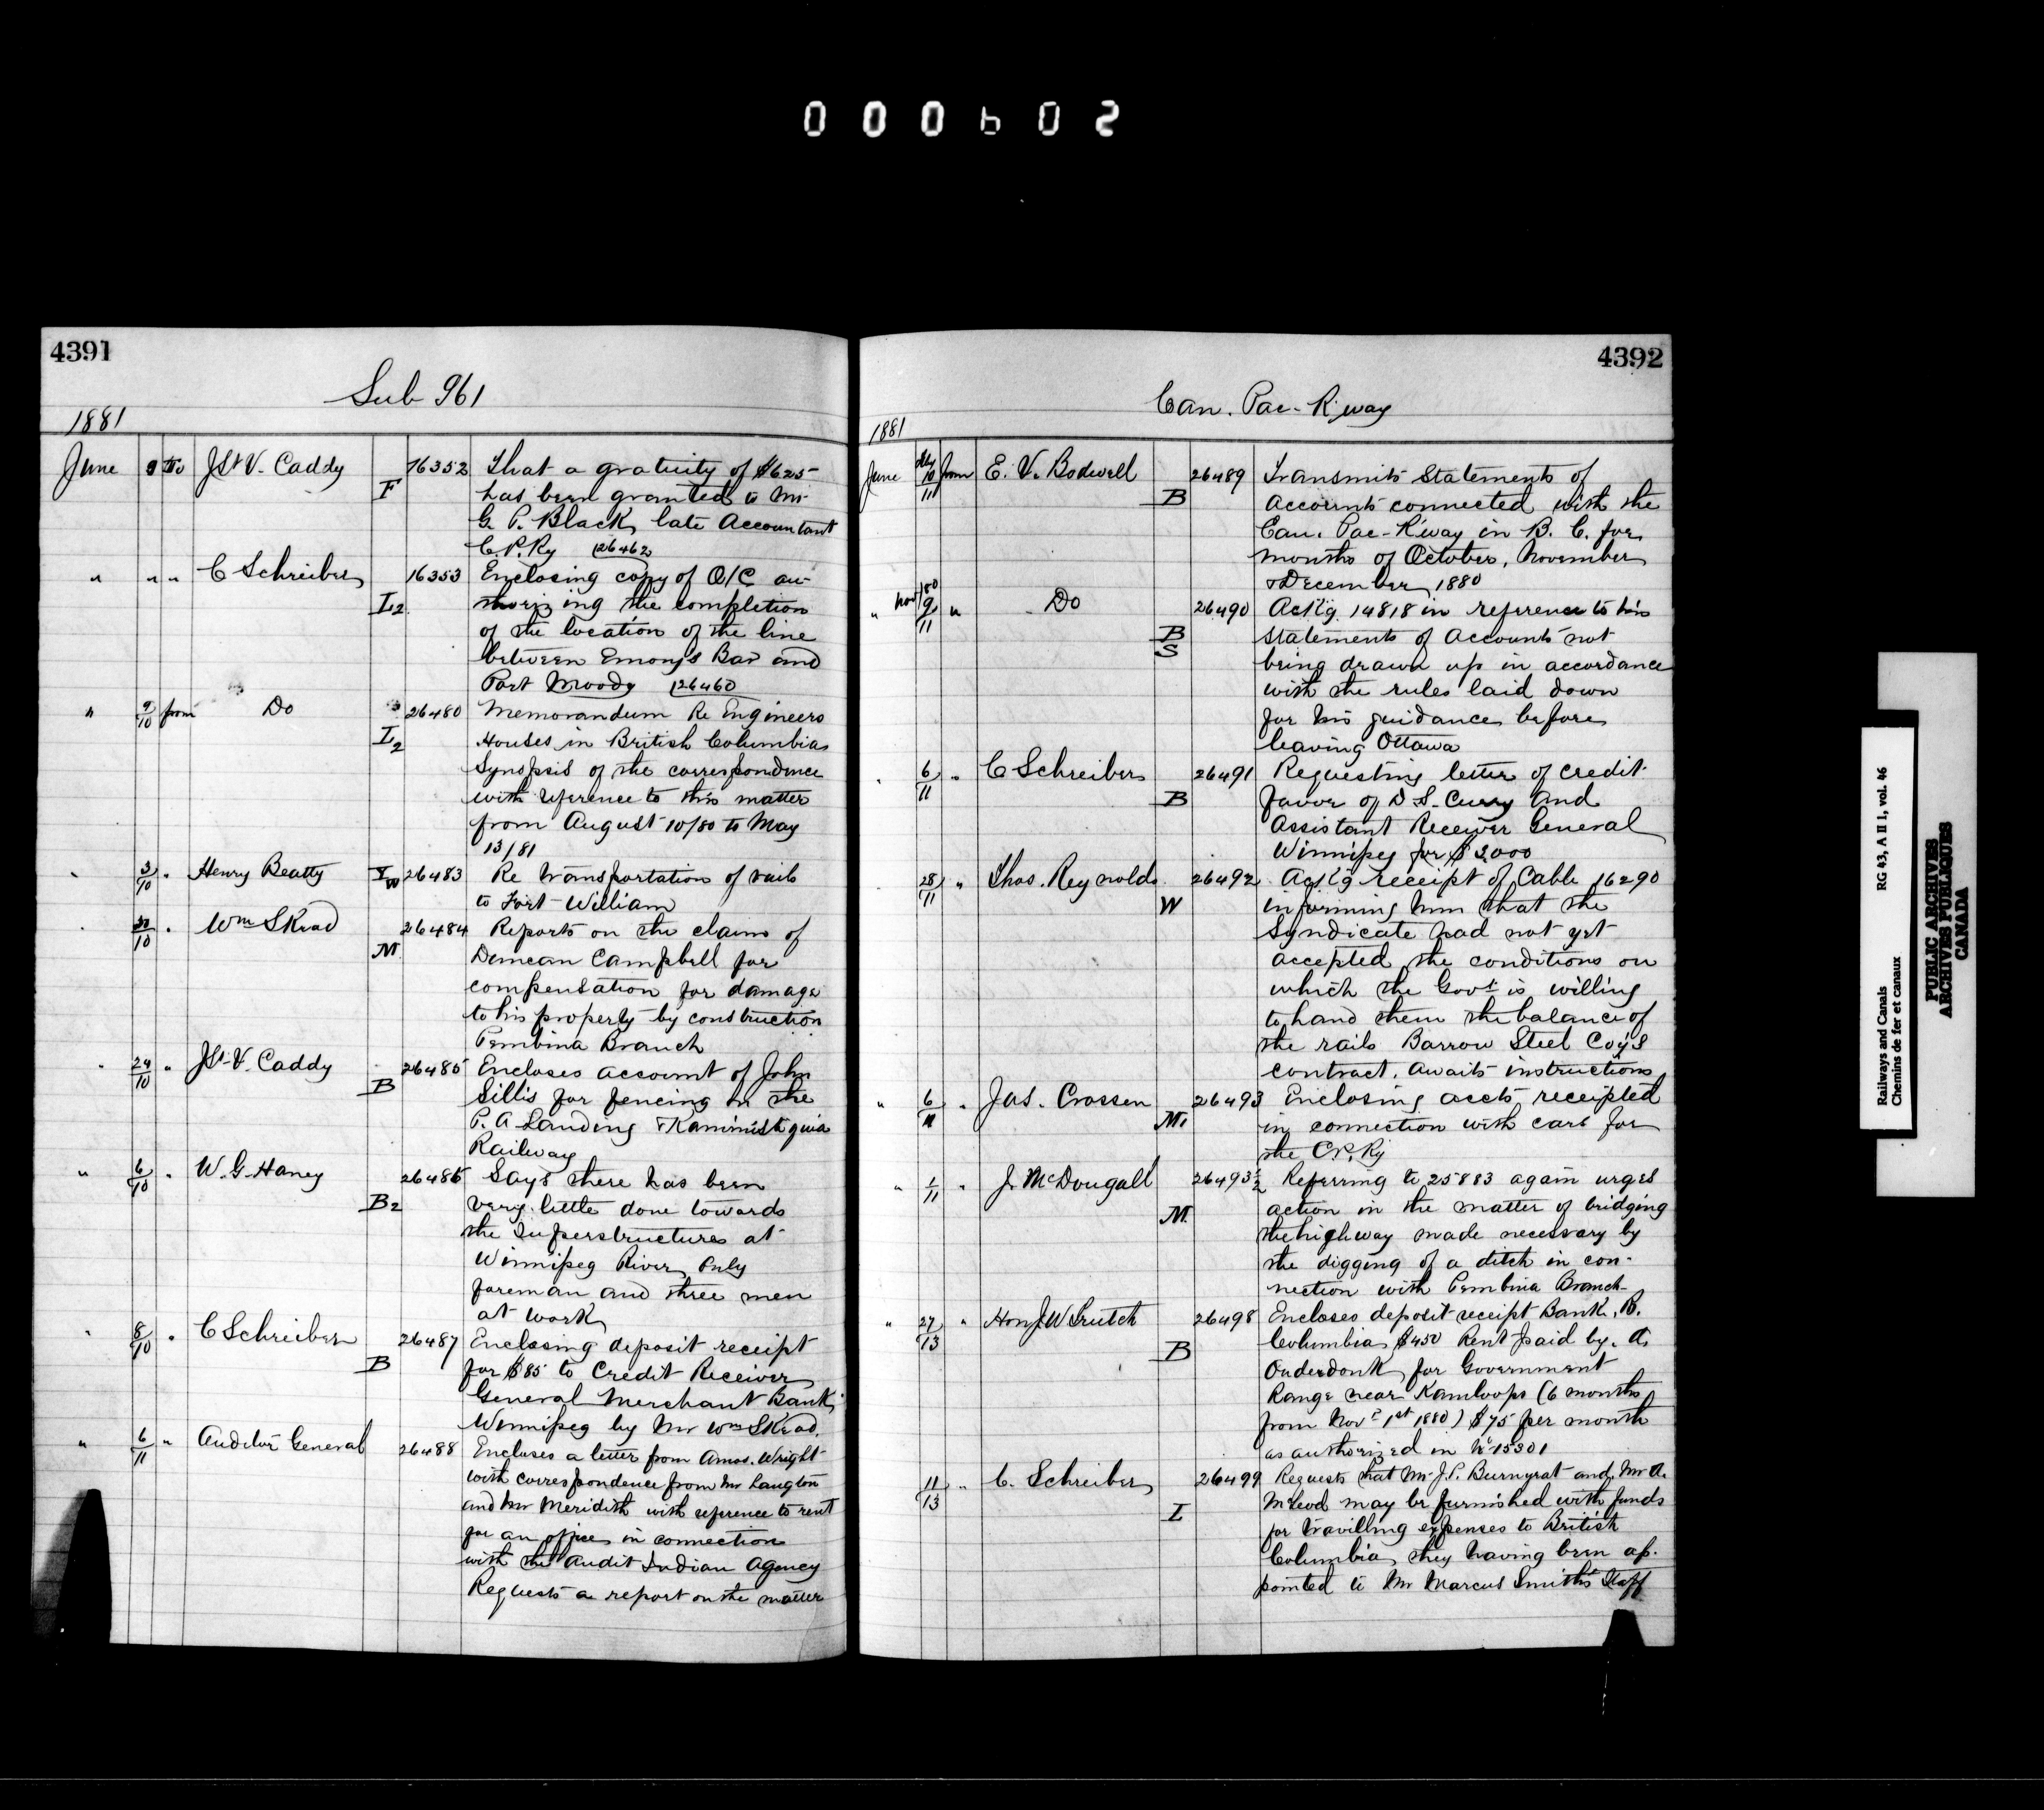 000602
4391
Sub 961
1881
June 9 To J St V. Caddy F 16352 That a gratuity of $625
has been granted to Mr
G. P. Black, late Accountant
C. P. Ry 26462
" " " C Schreiber L2 16353 Enclosing copy of O/C au-
thorizing the completion
of the location of the line
between Emorys Bar and
Port Moody 26460
" 9/10 from Do L2 26480 Memorandum Re Engineers
Houses in British Columbia
Synopsis of the correspondence
with reference to this matter
from August 10/80 to May
13/81
" 3/10 " Henry Beatty 26483 Re Transportation of rails
to Fort William
" /10 " Wm SKead M 26484 Reports on the claim of
Duncan Campbell for
compensation for damage
to his property by construction
Pembina Branch
" 24/10 " J St V. Caddy B 26485 Encloses account of John
Sillis for fencing on the
P. A Landing & Kaministiquia
Railway
" 6/10 " W. G. Haney B2 26486 Says there has been
very little done towards
the Superstructures at
Winnipeg River, Only
foreman and three men
at work
" 8/10 " C Schreiber B 26487 Enclosing deposit receipt
for $85 to Credit Receiver
General Merchant Bank,
Winnipeg by Mr Wm SKead.
" 6/11 " Auditor General 26488 Encloses a letter from Amos. Wright
with correspondence from Mr Langton
and Mr Meridith with reference to rent
for an office in connection
with the Audit Indian Agency
Requests a report on the matter
4392
Can. Pac. R'way
1881
June 10/11 from E. V. Bodwell B 26489 Transmits Statements of
Accounts connected with the
Can. Pac. R'way in B. C. for
months of October, November
& December, 1880
" Nov/80 9/11 " Do B S 26490 Ack'g 14818 in reference to his
statements of Accounts not
being drawn up in accordance
with the rules laid down
for his guidance before
leaving Ottawa
" 6/11 " C Schreiber B 26491 Requesting letter of credit
favor of D. S. Curry and
Assistant Receiver General
Winnipeg for $3000
28/11 " Thos. Reynolds W 26492 Ack'g receipt of Cable 16290
informing him that the
Syndicate had not yet
accepted the conditions on
which the Govt is willing
to hand them the balance of
the rails Barrow Steel Coy's
contract. Awaits instructions
" 6/11 " Jas. Crossen M. 26493 Enclosing accts receipted
in connection with cars for
the C.P. Ry
" 1/11 " J. McDougall M. 26493½ Referring to 25883 again urges
action in the matter of bridging
the highway made necessary by
the digging of a ditch in con-
nection with Pembina Branch
" 27/13 " Hon J. W Trutch B 26498 Encloses deposit receipt Bank, B.
Columbia, $450 Rent paid by. A.
Onderdonk for Government
Range near Kamloops (6 months
from Novr 1st 1880) $75 per month
as authorized in No 15301
11/13 " C. Schreiber I 26499 Requests that Mr J. P. Burnyrat and Mr A.
McLeod may be furnished with funds
for travilling expenses to British
Columbia, they having been ap-
pointed to Mr Marcus Smith's Staff
Railways and Canals RG 43, A II 1, vol. 46
Chemins de fer et canaux
PUBLIC ARCHIVES
ARCHIVES PUBLIQUES
CANADA